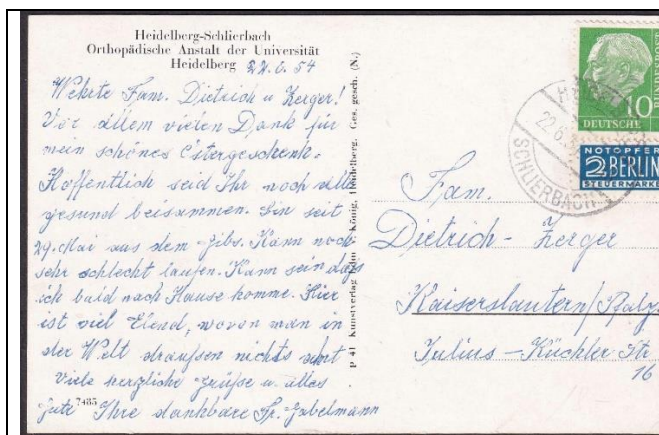 Heidelberg-Schlierbach
Orthopädische Anstalt der Universität
Heidelberg 22.6.54
Wehrte Fam. Dietrich u Zerger!
Vor allem vielen Dank für
mein schönes Ostergeschenk.
Hoffentlich seid Ihr noch alle
gesund beisammen. Bin seit
29. Mai aus dem Gibs. Kann noch
sehr schlecht laufen. Kann sein daß
ich bald nach Hause komme. Hier
ist viel Elend, wovon man in
der Welt draußen nichts ahnt
Viele herzliche Grüße u. alles
7485
Gute Ihre dankbare Fr. Gabelmann
P 41 Kunstverlag König, Heidelberg. Ges. gesch. (N.)
DEUTSCHE
BUNDESPOST
10
NOTOPFER
2 BERLIN
STEUERMARKE
22.6.
SCHLIERBACH
Fam.
Dietrich - Zerger
Kaiserslautern/Pfalz
Julius-Küchler Str
16